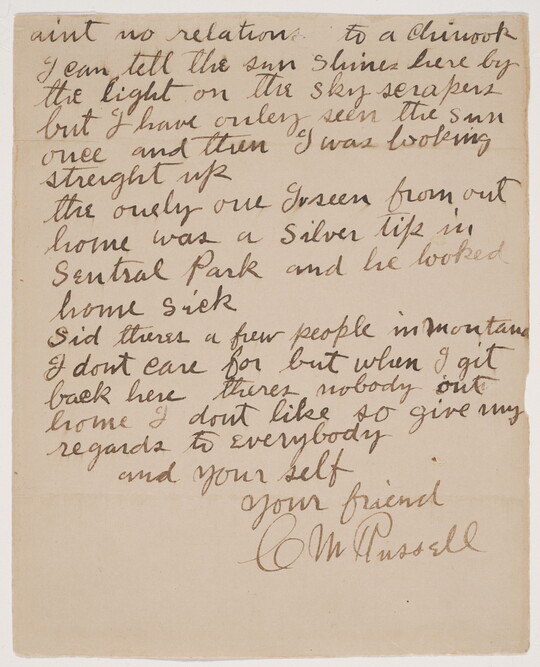 aint no relations to a chinook
I can tell the sun shines here by
the light on the sky scrapers
but I have onley seen the sun
once and then I was looking
streight up
the onely one I seen from out
home was a Silver tip in
Sentral Park and he looked
home sick
Sid theres a few people in Montana
I dont care for but when I git
back here theres nobody out
home I dont like so give my
regards to everybody
and your self
your friend
C M Russell